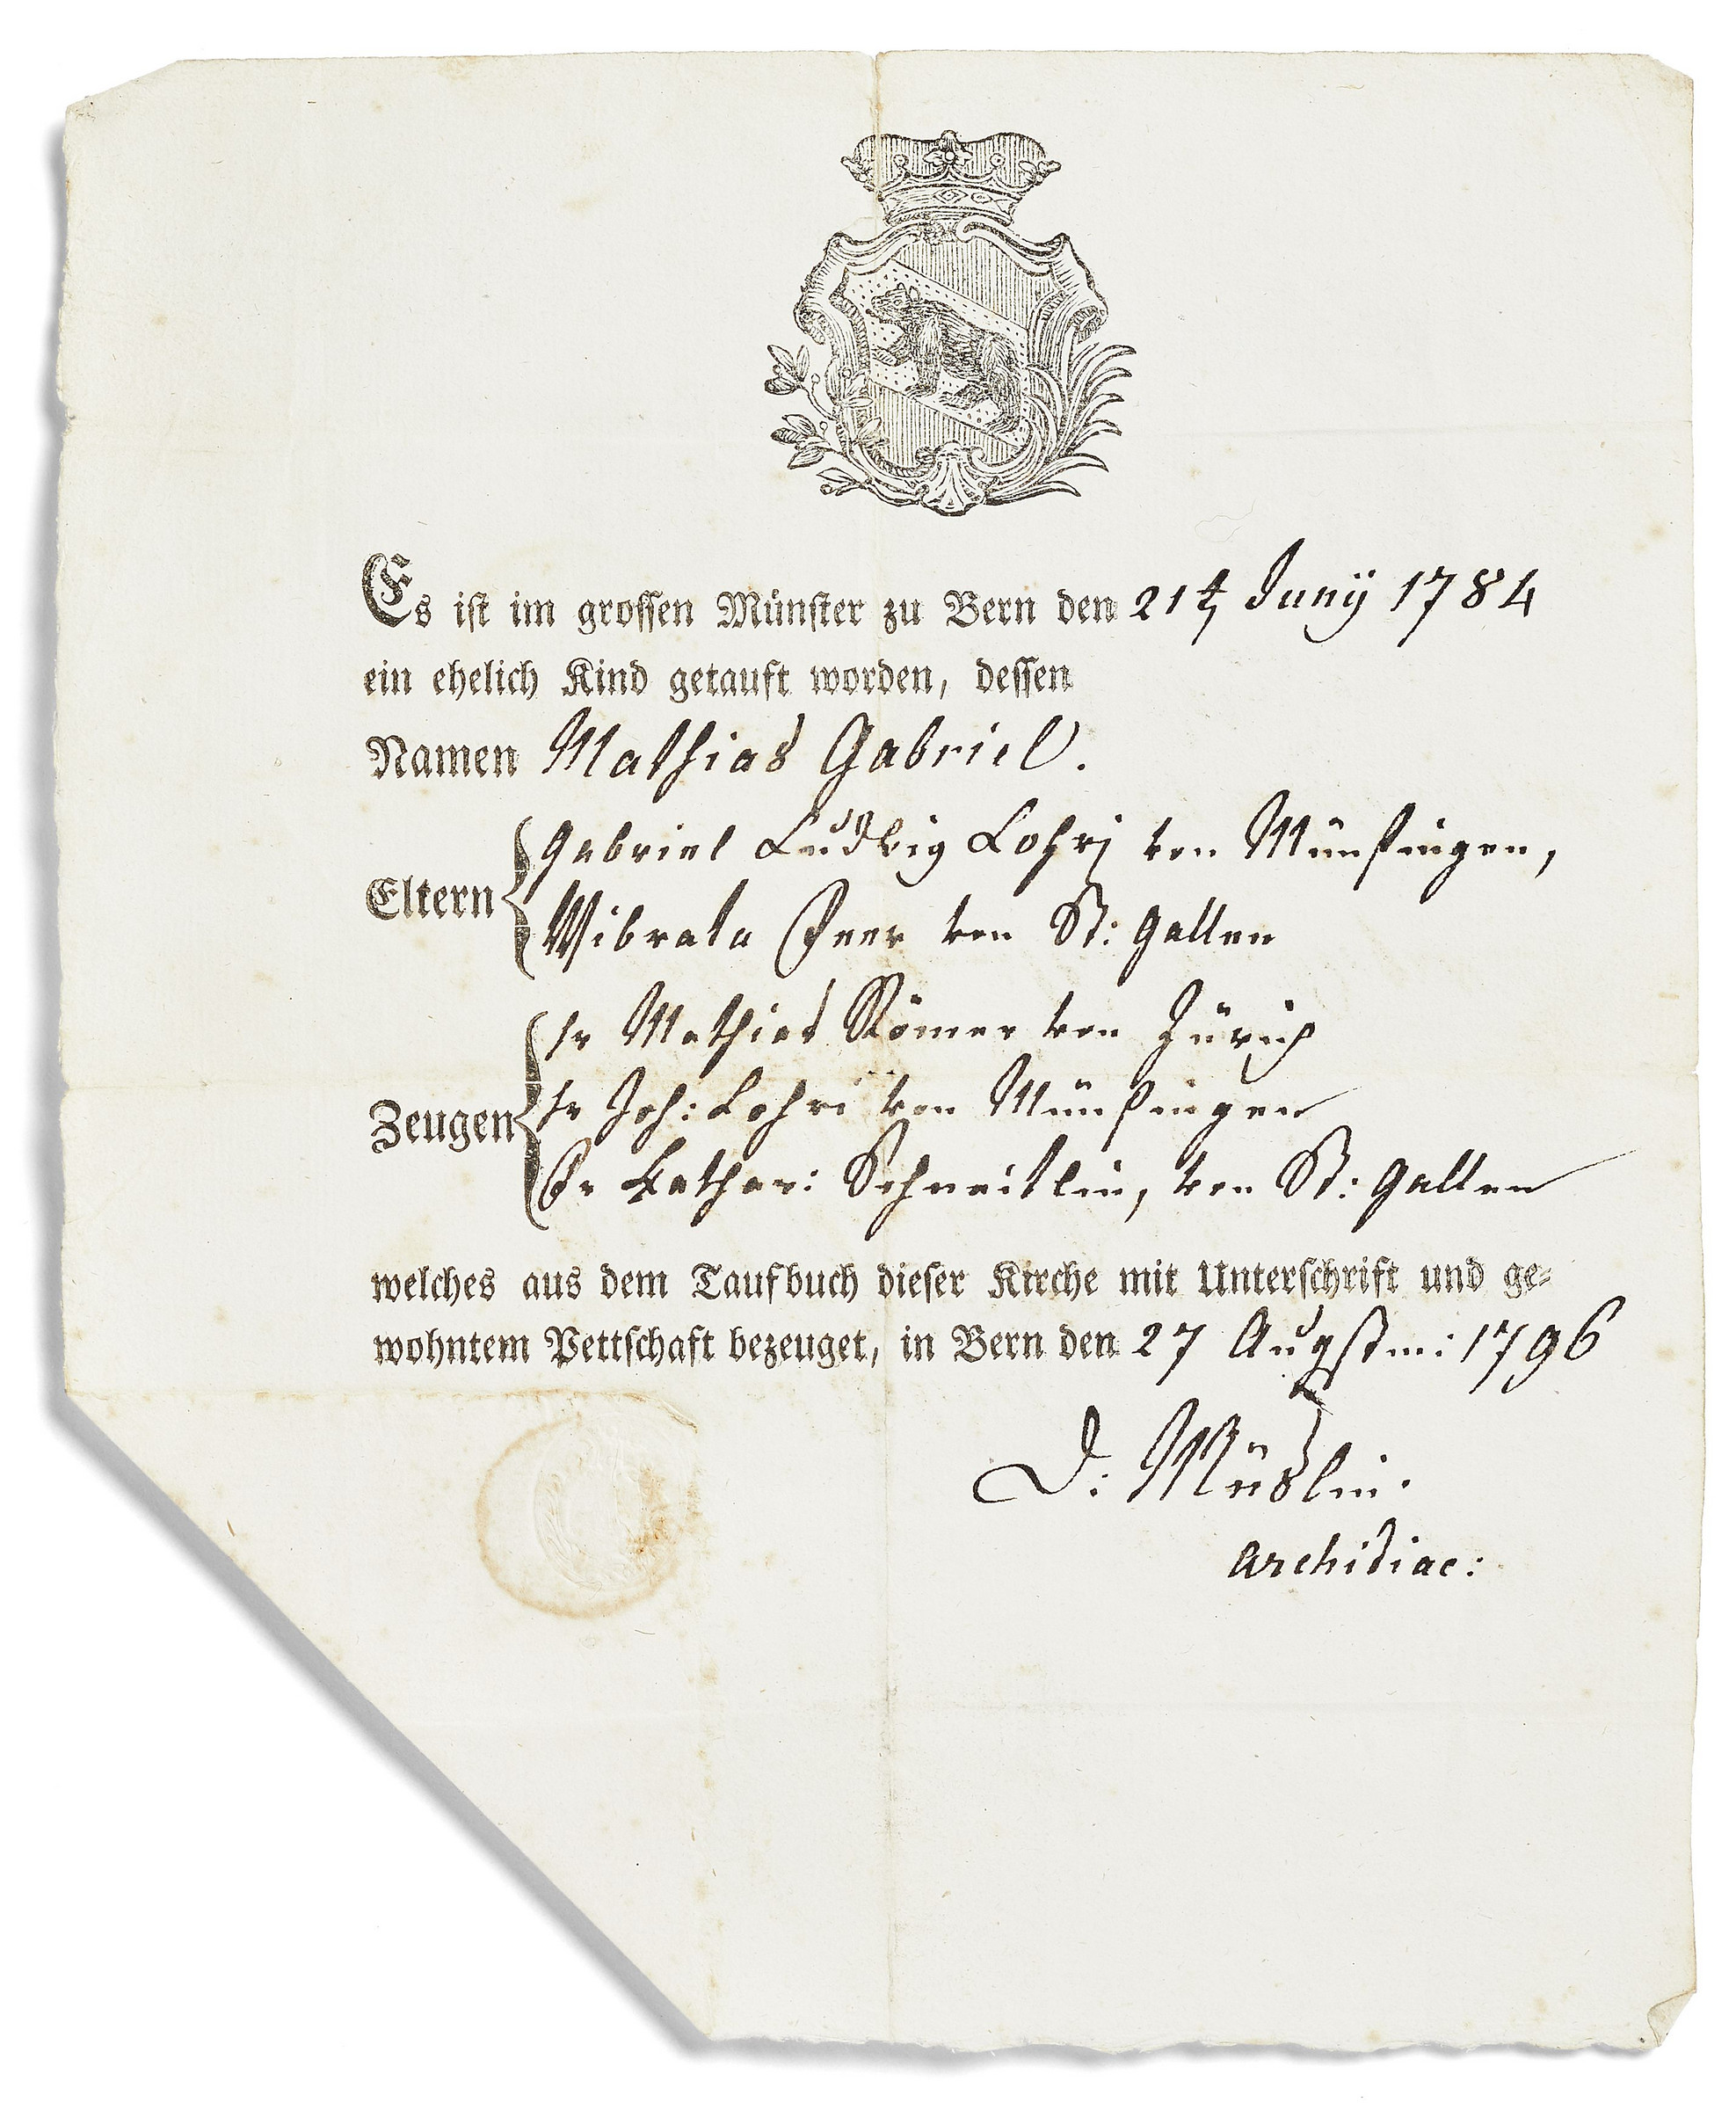 Es ist im grossen Münster zu Bern den 21t Junÿ 1784
ein ehelich Kind getauft worden, dessen
Namen Mathias Gabriel.
Eltern
Gabriel Ludwig Lohrj von Münsingen,
Wibrata von St: Gallen
Zeugen
hr Mathias Römer von Zürich
hr Joh: Lohri von Münsingen
Fr Cathar: Schneitlin, von St: Gallen
welches aus dem Taufbuch dieser Kirche mit Unterschrift und ge-
wohntem Pettschaft bezeuget, in Bern den 27 Augstm: 1796
D: Müslin.
Archidiac: